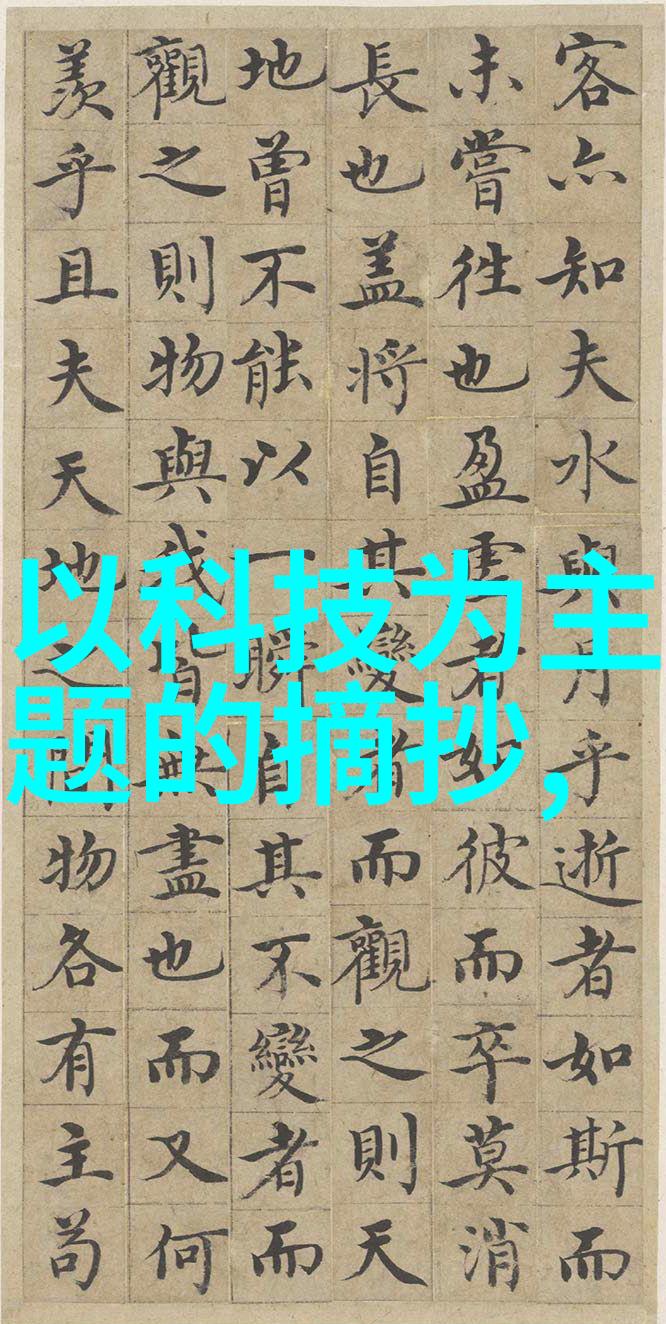 客亦知夫水與月乎逝者如斯而
未嘗往也盈虛者如彼而卒莫消
長也盖將自其變者而觀之則天
地曾不能以一瞬自其不變者而
觀之則物與我皆無盡也而又何
羨乎且夫天地之間物各有主苟
以科技为主
题的摘抄,